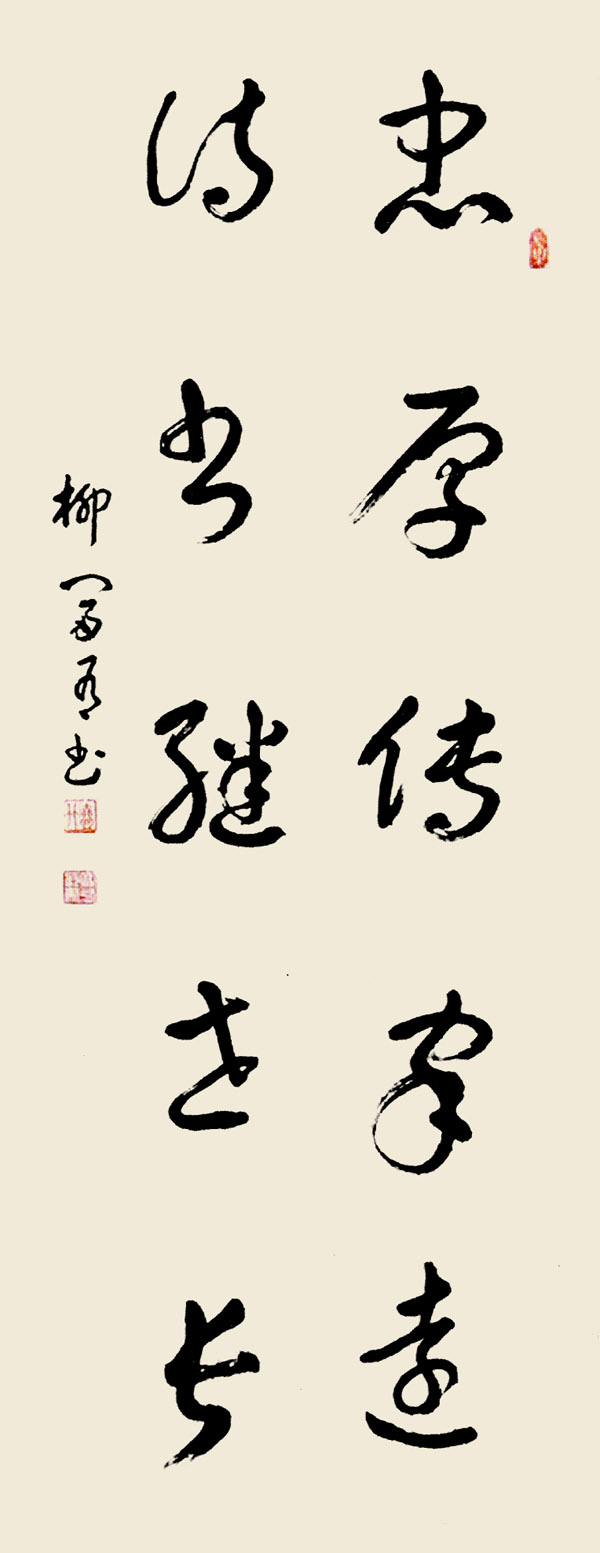 忠厚传家远
诗书继世长
柳 书